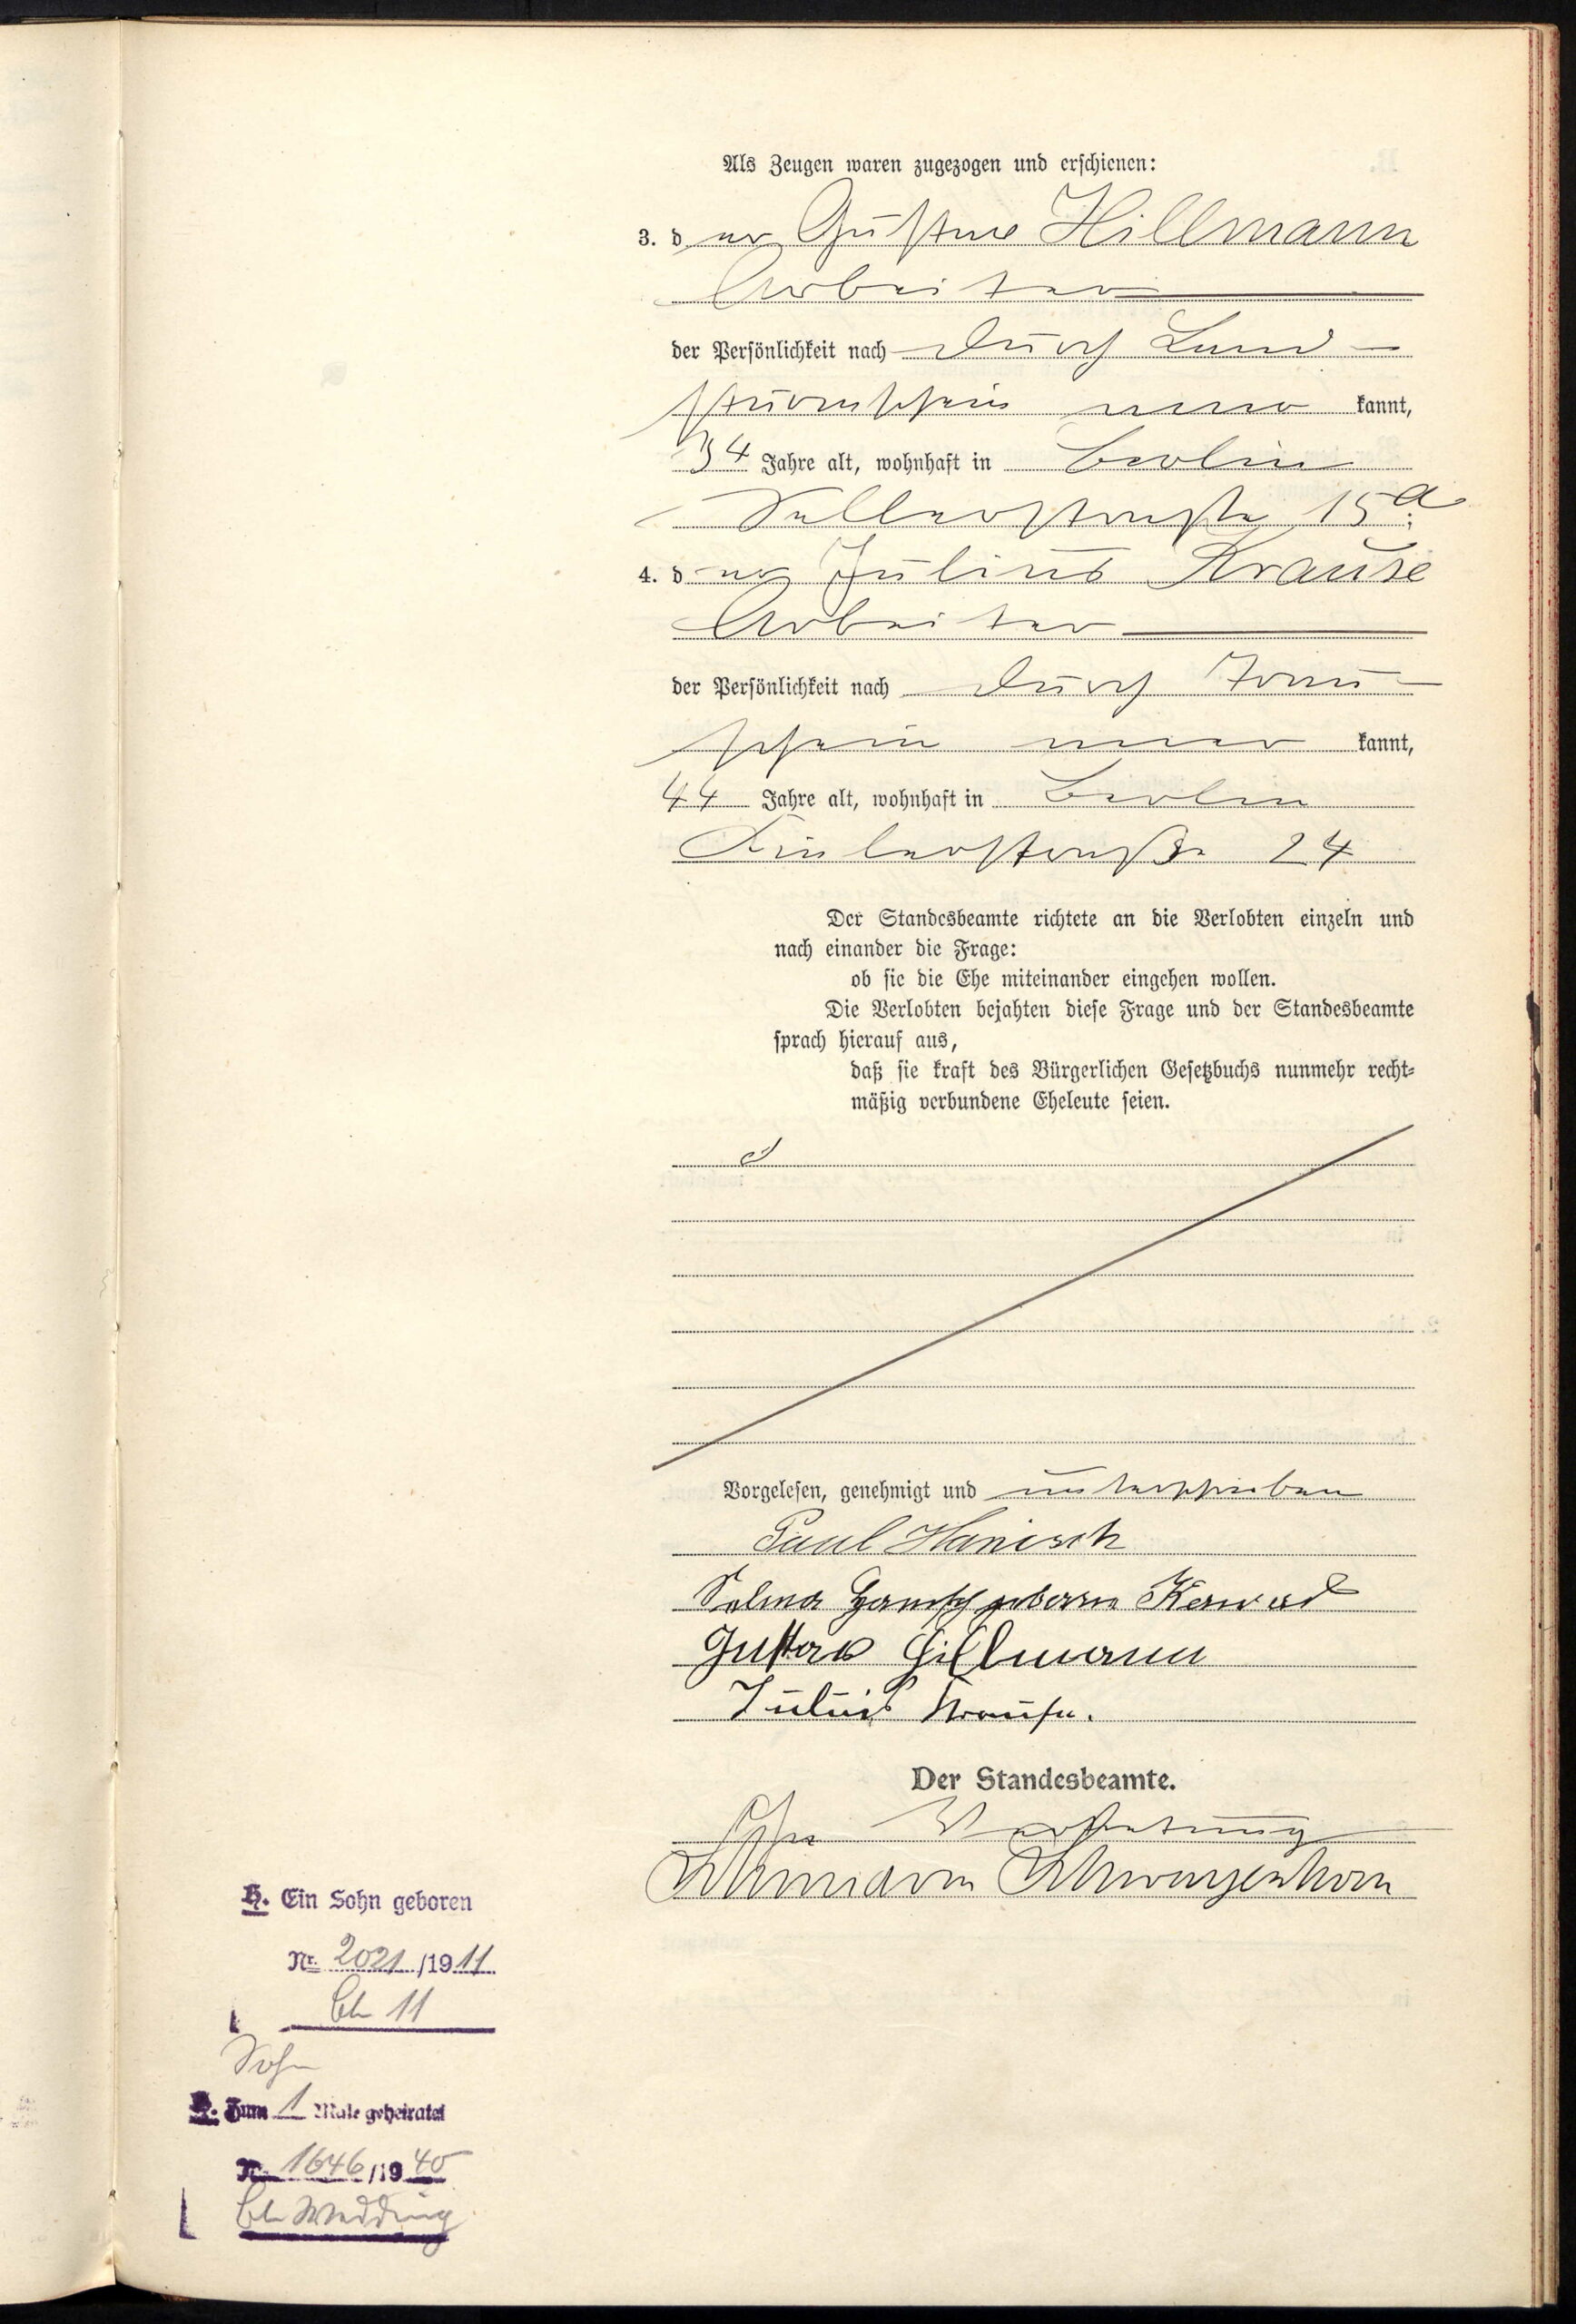 Als Zeugen waren zugezogen und erschienen:
3. der Gustav Hillmann
Arbeiter
der Persönlichkeit nach durch Land-
sturmschein aner kannt,
34 Jahre alt, wohnhaft in Berlin
Sellerstraße 15a;
4. der Julius Krause
Arbeiter
der Persönlichkeit nach durch Trau-
schein aner kannt,
44 Jahre alt, wohnhaft in Berlin
24
Der Standesbeamte richtete an die Verlobten einzeln und
nach einander die Frage:
ob sie die Ehe miteinander eingehen wollen.
Die Verlobten bejahten diese Frage und der Standesbeamte
sprach hierauf aus,
daß sie kraft des Bürgerlichen Gesetzbuchs nunmehr recht-
mäßig verbundene Eheleute seien.
Vorgelesen, genehmigt und unterschrieben
Paul Hanisch
Selma Hanisch geborne
Gustav Hillmann
Julius Krause.
Der Standesbeamte.
In Vertretung
H. Ein Sohn geboren
Nr. 2021/1911
Bln 11
Sohn
H. Zum 1 Male geheiratet
Nr. 1646/1940
Bln Wedding